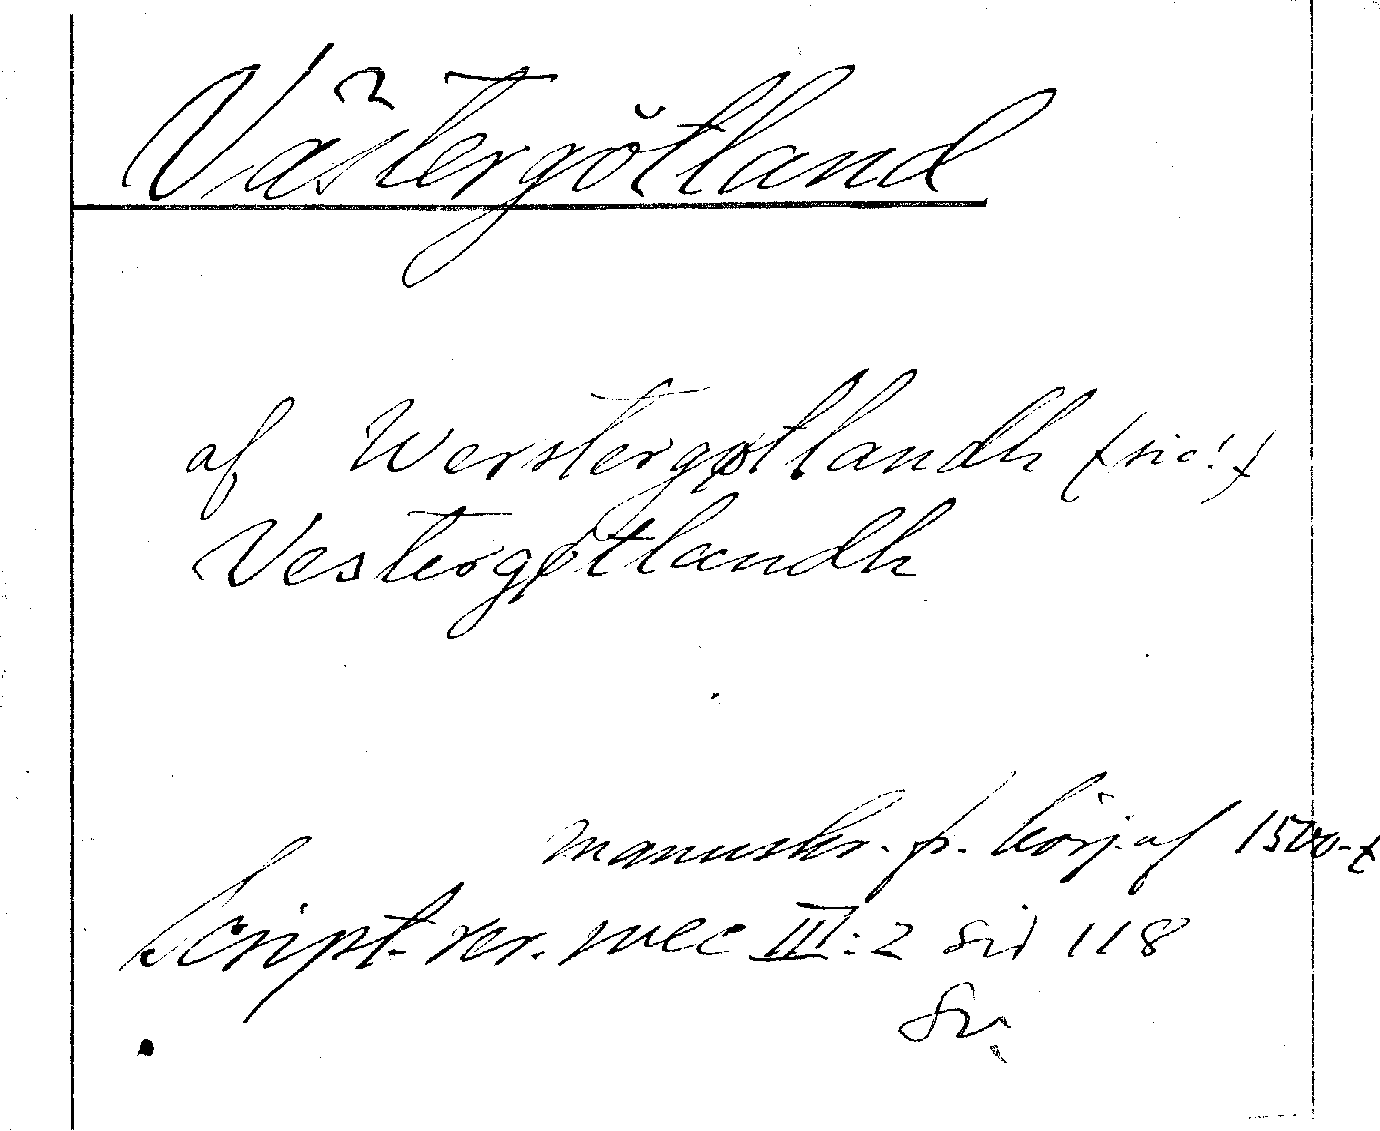 Västergötland
af Werstergøtlandh (sic!)
Vestergøtlandh
manuskr. fr. börj af 1500-t
Script. rer. svec III:2 sid 118